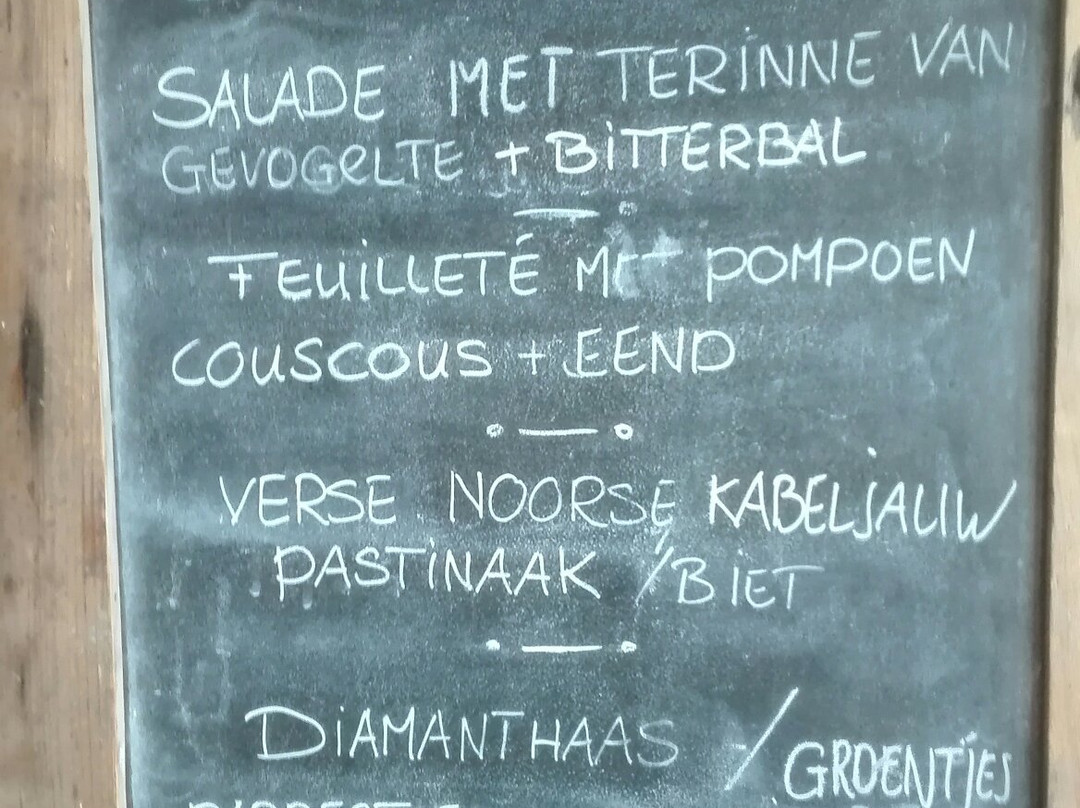 SALADE MET TERINNE VAN
GEVOGELTE + BITTERBAL
FEUILLETÉ MET POMPOEN
COUSCOUS + EEND
VERSE NOORSE KABELJAUW
PASTINAAK / BIET
DIAMANTHAAS / GROENTJES